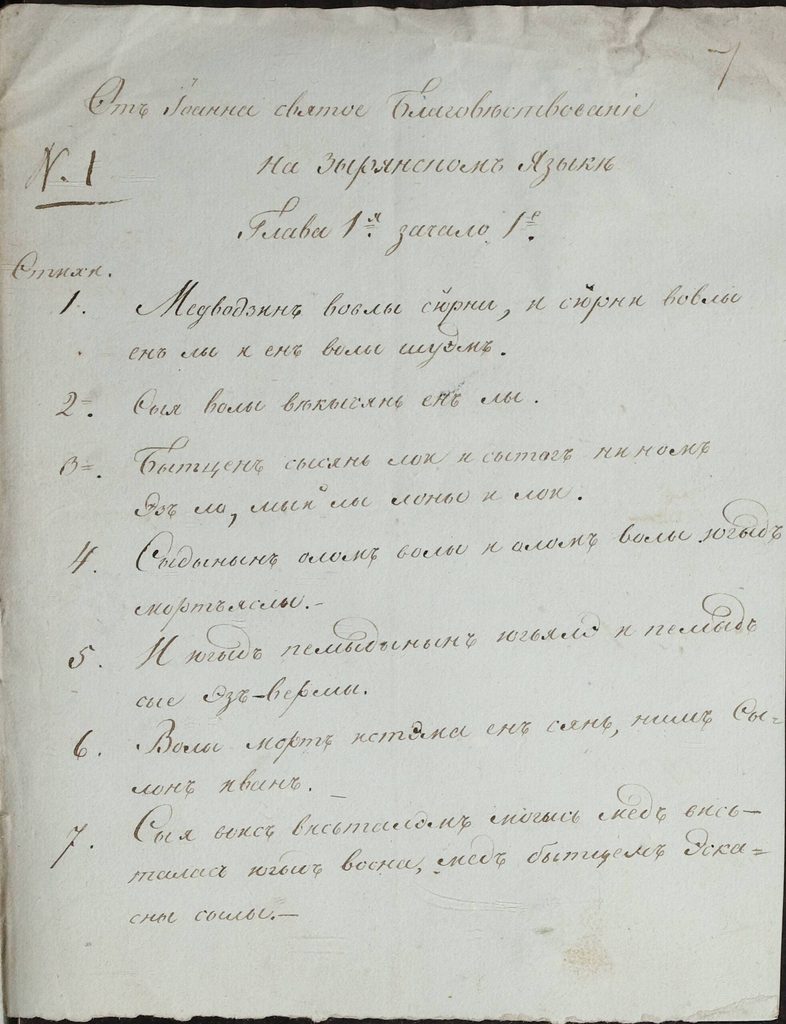 Отъ Іоанна святое Благовѣствованіе
на Зырянскомъ Языкѣ
N. 1
Глава 1я зачало 1е.
Стихи.
1. Медводзинъ вовлы сёрни, и сёрни вовлы
енъ лы и енъ волы шуэмъ.
2. Сыя волы вѣкычянь енъ лы.
3. Бытщенъ сысянь лои и сытогъ ниномъ
эзъ ло, мый лы лоны и лои.
4. Сыдынынъ оломъ волы и оломъ волы югыдъ
мортъяслы.-
5. И югыдъ пемыдынынъ югьялэ и пемыдъ
сые эзъ-вермы.
6. Волы мортъ истэма енъ сянь, нимъ Сы-
лонъ иванъ.
7. Сыя воисъ висьталэмъ могысь медъ вись-
таласъ югыдъ восна, медъ бытщемъ эска-
сны сылы.-